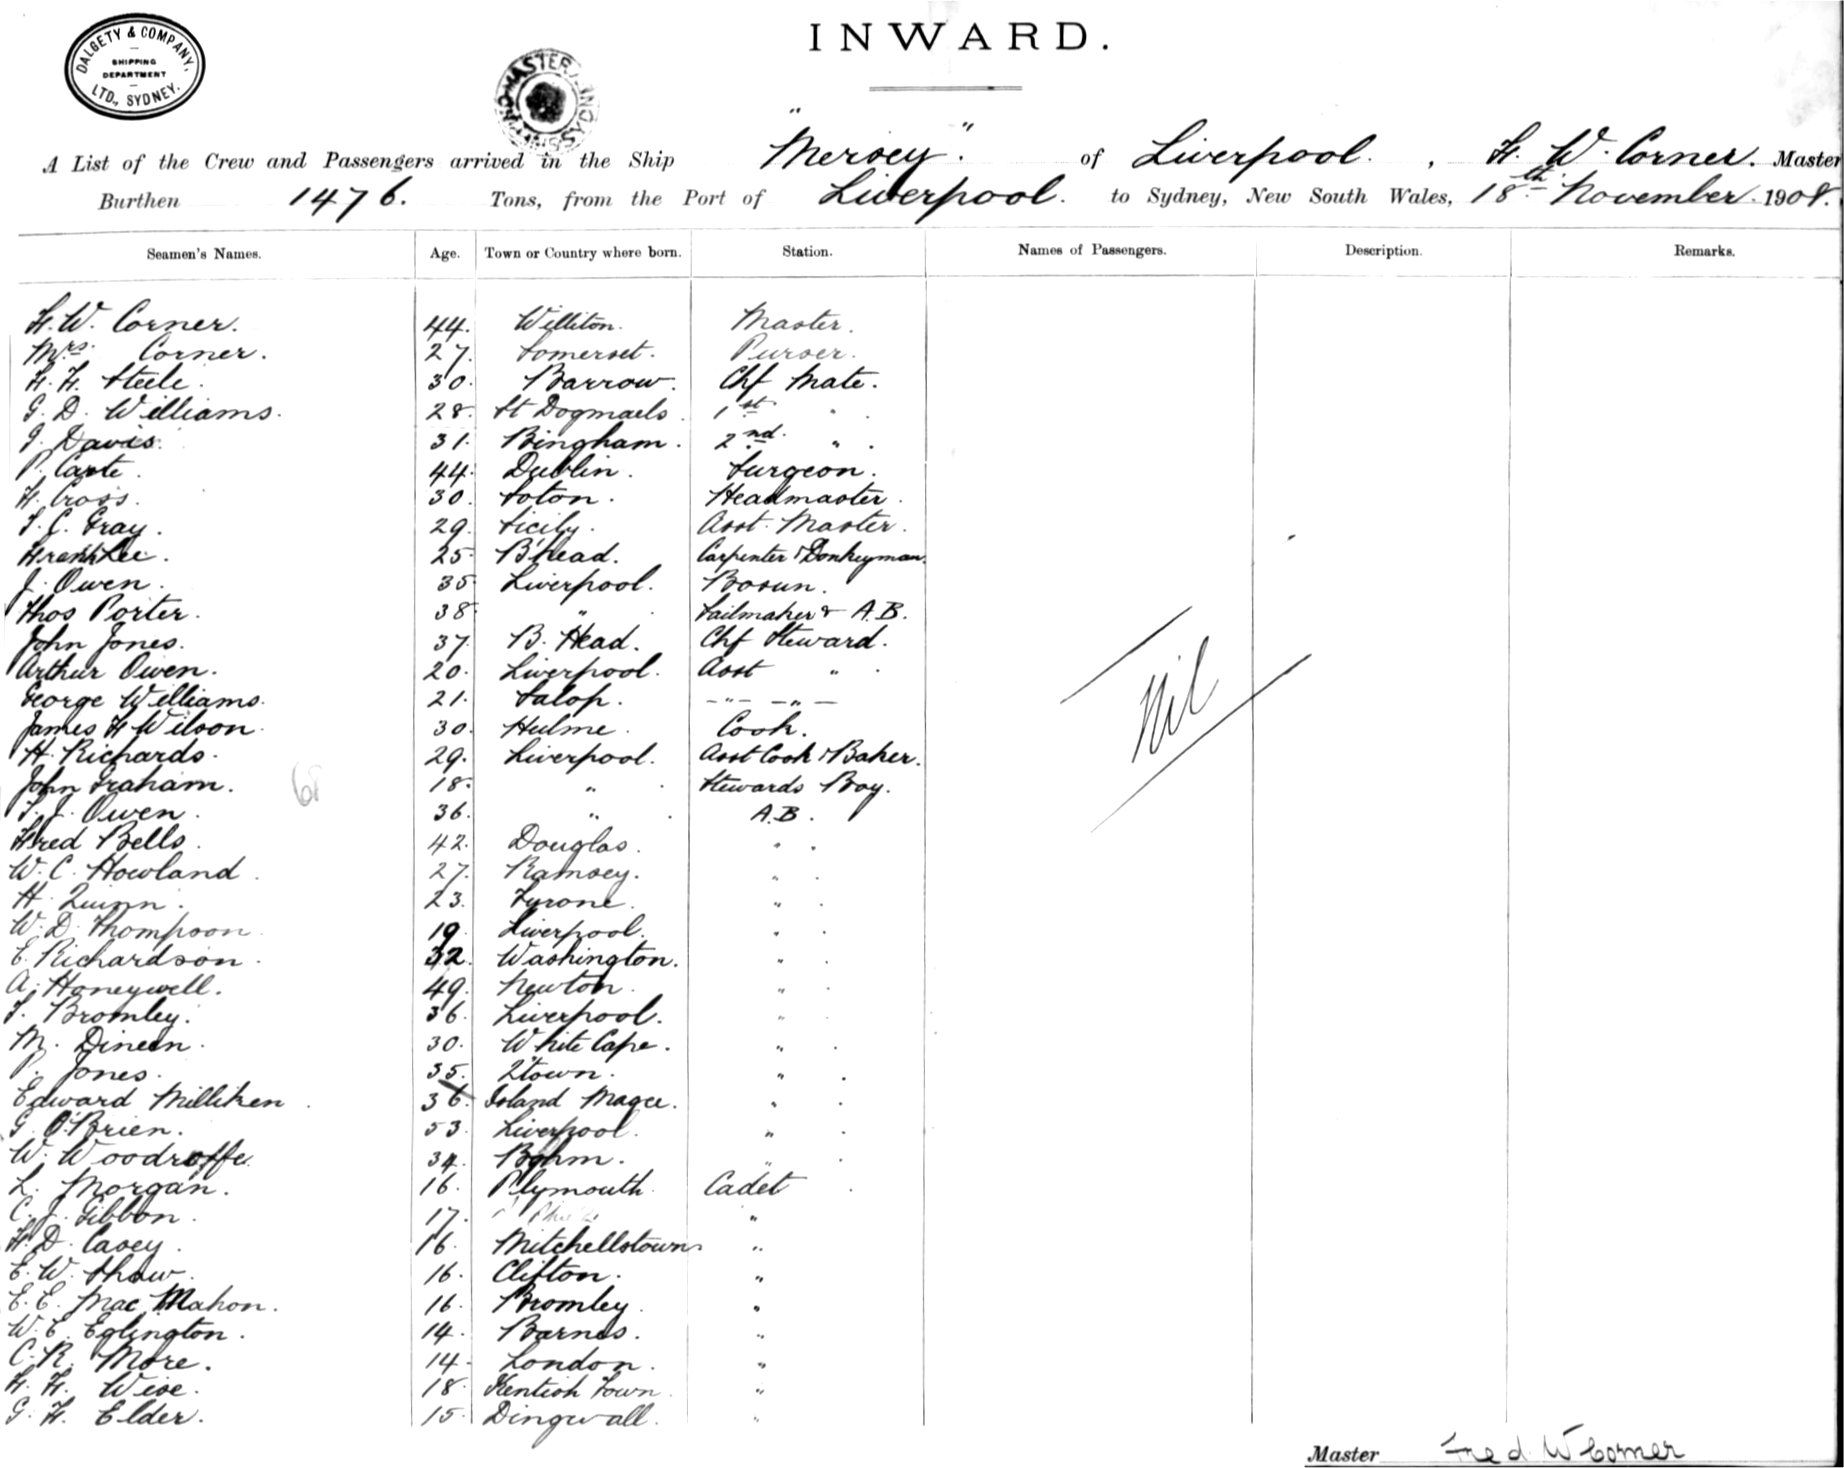 DALGETY & COMPANY,
SHIPPING
DEPARTMENT
LTD., SYDNEY.
INWARD.
A List of the Crew and Passengers arrived in the Ship "Mersey". of Liverpool. , F. W. Corner. Master
Burthen 1476. Tons, from the Port of Liverpool. to Sydney, New South Wales, 18th November. 1908.
Seamen's Names. Age. Town or Country where born. Station. Names of Passengers. Description. Remarks.
F. W. Corner. 44. Williton. Master.
Mrs. Corner. 27. Somerset. Purser.
F. F. Steele. 30. Barrow. Chf Mate.
G. D. Williams. 28. St Dogmaels 1st " .
Davis. 31. Bingham. 2nd. " .
P. 44. Dublin. Surgeon.
F. Cross. 30. Soton. Headmaster.
T. C. Gray. 29. Sicily. Asst. Master.
Frank Lee. 25 B'head. Carpenter & Donkeyman.
J. Owen. 35 Liverpool. Bosun.
Thos Porter. 38 " . Sailmaker & A.B.
John Jones. 37. B. Head. Chf Steward.
Arthur Owen. 20. Liverpool. Asst " .
George Williams. 21. Salop. -"- -"-
James F Wilson. 30. Hulme. Cook.
H. Richards. 29. Liverpool. Asst Cook & Baker.
John Graham. 18. " . Stewards Boy.
T. J. Owen. 36. " . A.B.
Fred Bells. 42. Douglas. " .
W. C. Howland. 27. Ramsey. " .
H. Quinn. 23. Tyrone. " .
W. D. Thompson. 19. Liverpool. " .
E. Richardson. 32. Washington. " .
A. Honeywell. 49. Newton. " .
T. Bromley. 36. Liverpool. " .
M. Dineen. 30. White Cape. " .
P. Jones. 35. Q'town. " .
Edward Milliken. 36. Island Magee. " .
G. O'Brien. 53. Liverpool. " .
W. Woodroffe. 34. Bghm. " .
L. Morgan. 16. Plymouth. Cadet .
C. J. Gibbon. 17. "
F. D. Casey. 16. Mitchellstown "
E. W. Shaw. 16. Clifton. "
E. E. Mac Mahon. 16. Bromley. "
W. E. Eglington. 14. Barnes. "
C. R. More. 14. London. "
F. F. Wise. 18. Kentish Town. "
G. F. Elder. 15. Dingwall. "
Nil
68
Master Fred W Corner